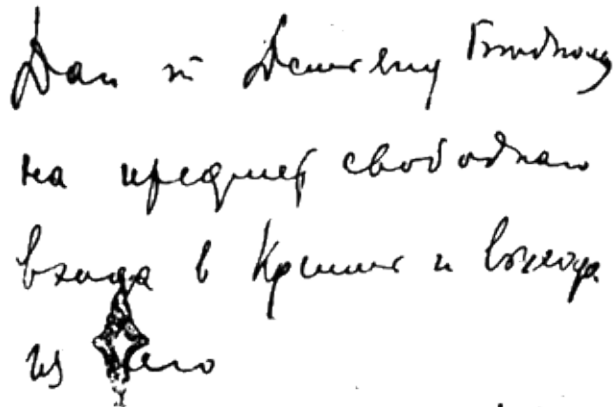 Дан т. Демьяну Бедному
на предмет свободного
входа в Кремль и выхода
из него